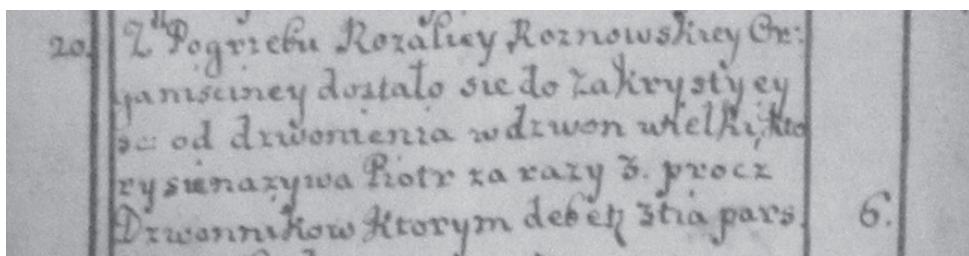 20. Z Pogrzebu Rozaliey Roznowskiey Or:
ganisciney dostało sie do Zakrystyey
sc od dzwonienia w dzwon wielki, kto
ry sie nazywa Piotr za razy 3. procz
Dzwonnikow ktorym debet 3tia pars. 6.